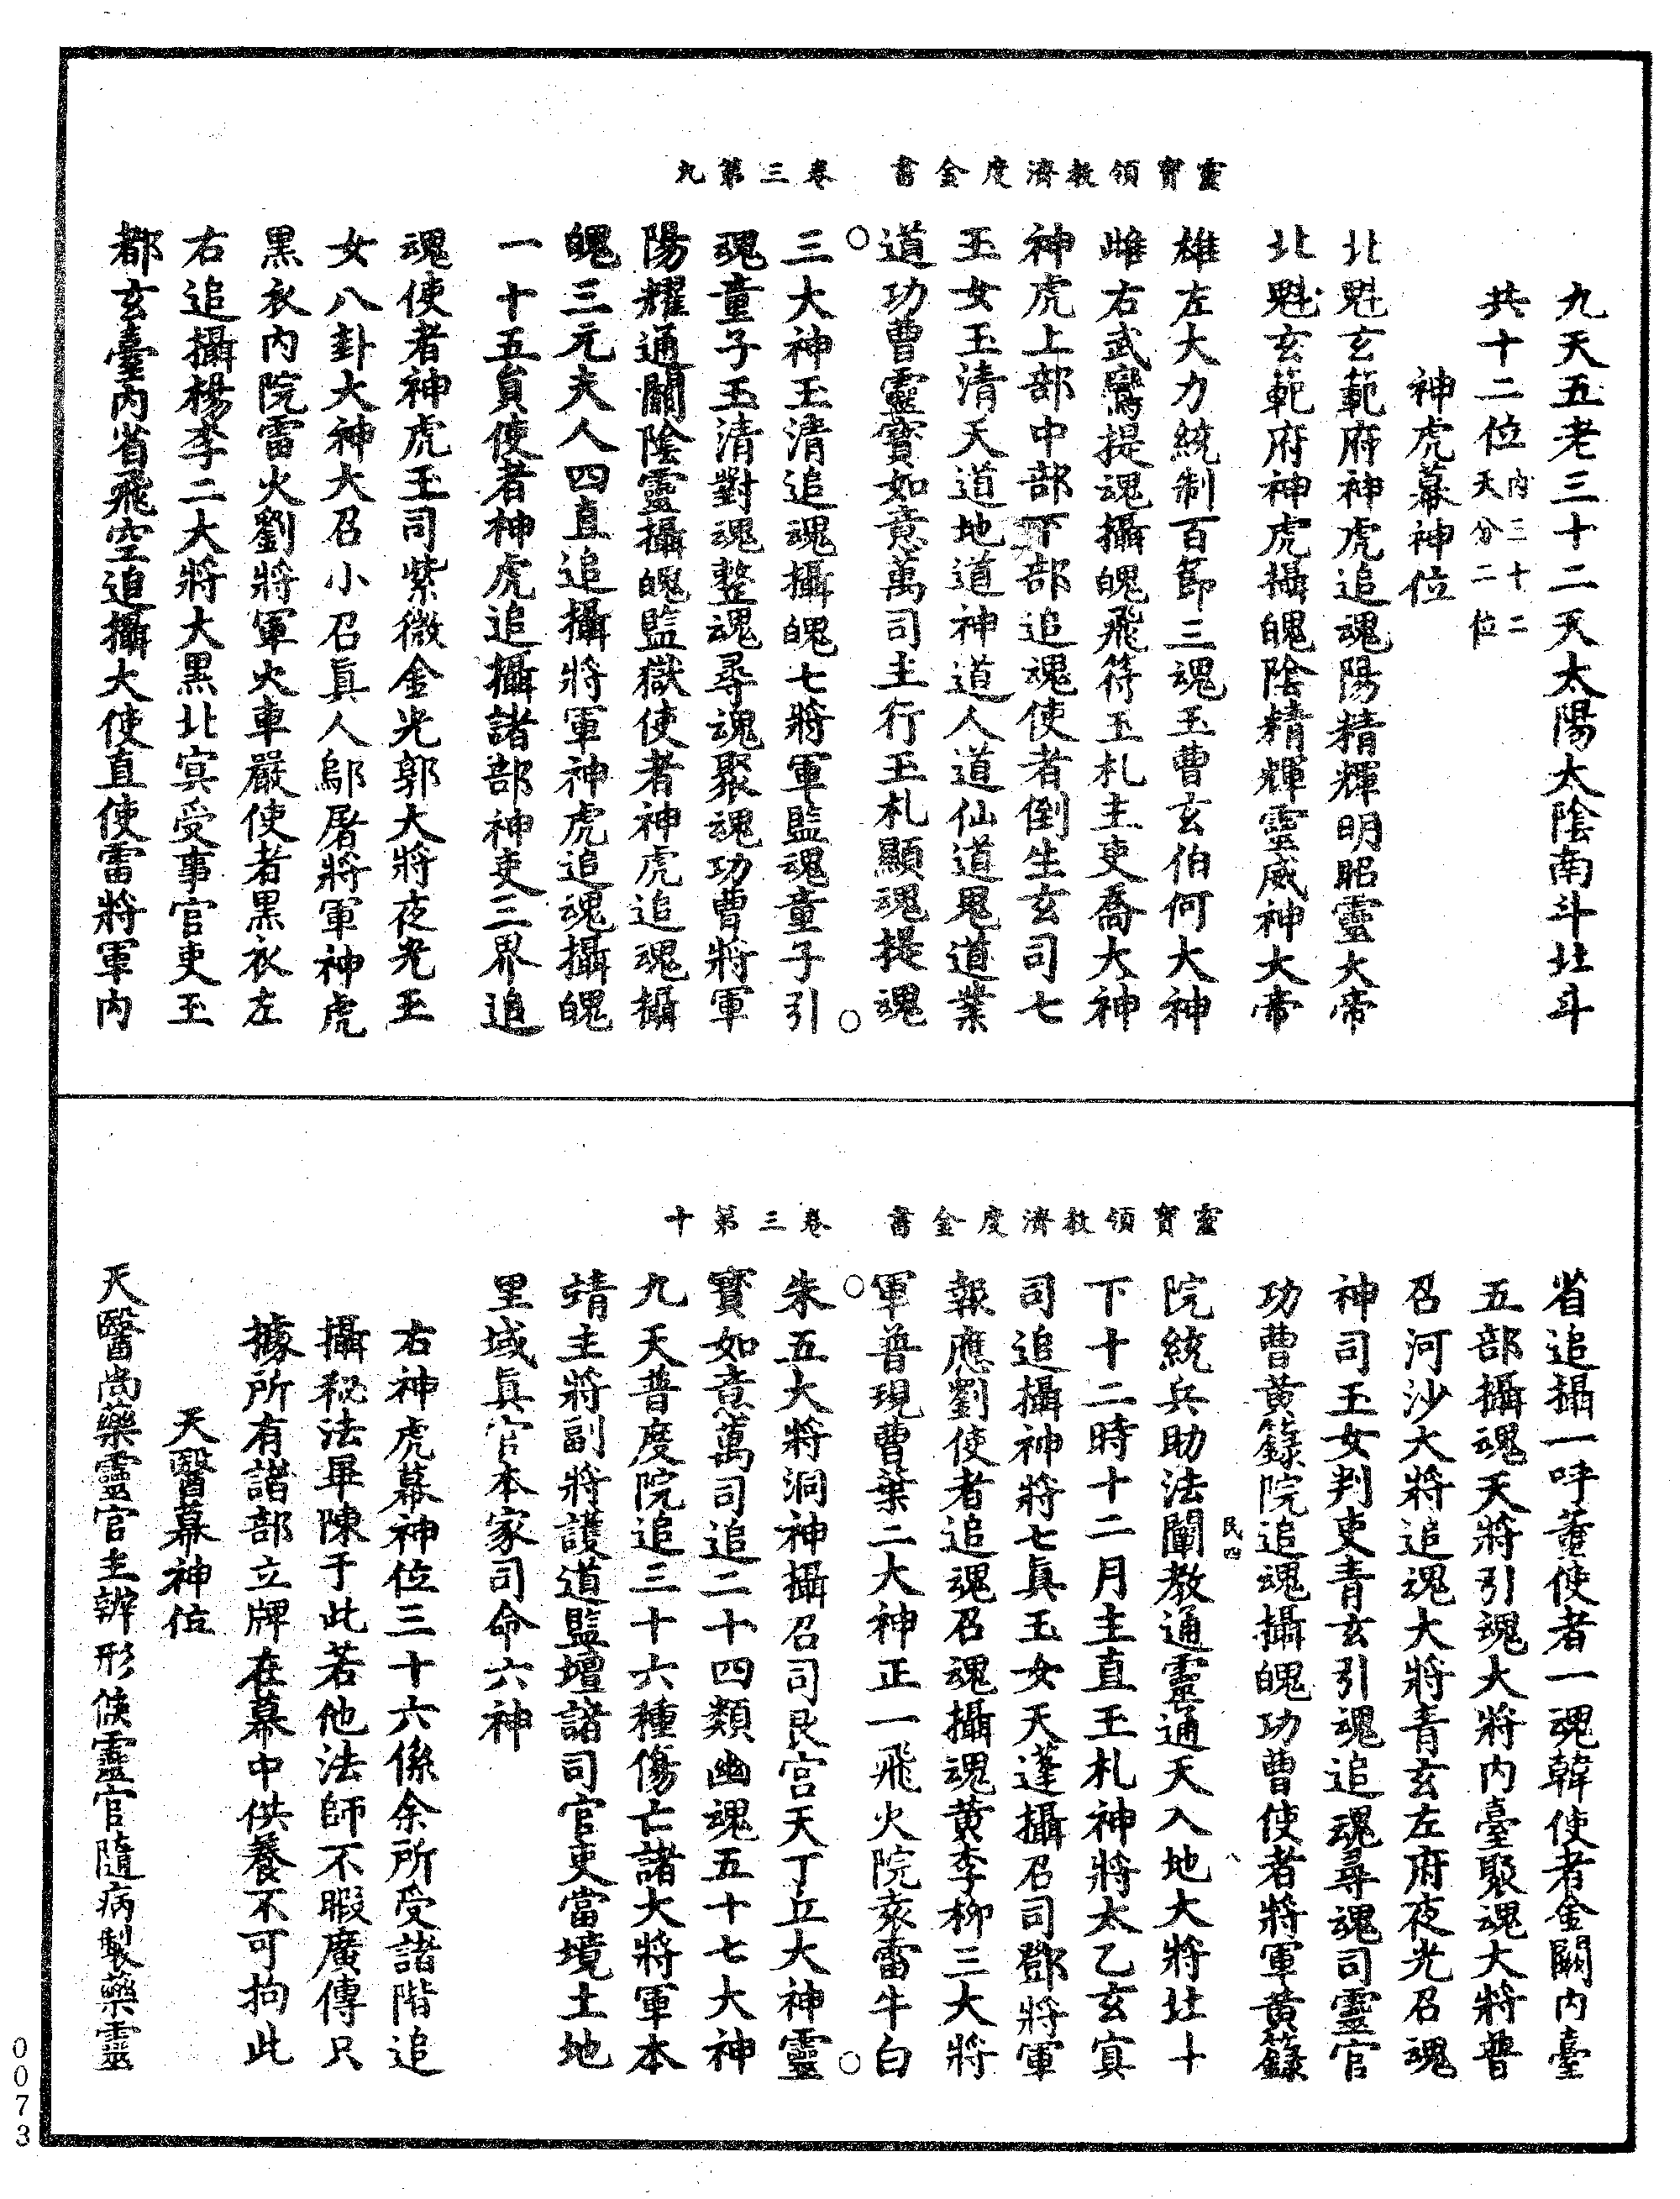 靈寶領教濟度金書　卷三第九
九天五老三十二天太陽太陰南斗北斗
共十二位內三十二天分二位
神虎幕神位
北魁玄範府神虎追魂陽精輝明昭靈大帝
北魁玄範府神虎攝魄陰精輝靈威神大帝
雄左大力統制百節三魂玉曹玄伯何大神
雌右武鸞提魂攝魄飛符玉札主吏喬大神
神虎上部中部下部追魂使者倒生玄司七
玉女玉清天道地道神道人道仙道鬼道業
道功曹靈寶如意萬司主行玉札顯魂提魂
三大神玉清追魂攝魄七將軍監魂童子引
魂童子玉清對魂整魂尋魂聚魂功曹將軍
陽耀通關陰靈攝魄監獄使者神虎追魂攝
魄三元夫人四直追攝將軍神虎追魂攝魄
一十五員使者神虎追攝諸部神吏三界追
魂使者神虎玉司紫微金光郭大將夜光玉
女八卦大神大召小召眞人鄔屠將軍神虎
黑衣內院雷火劉將軍火車嚴使者黑衣左
右追攝楊李二大將大黑北㝠受事官吏玉
都玄臺內省飛空追攝大使直使雷將軍內
靈寶領教濟度金書　卷三第十
省追攝一呼董使者一魂韓使者金闕內臺
五部攝魂天將引魂大將內臺聚魂大將普
召河沙大將追魂大將青玄左府夜光召魂
神司玉女判吏青玄引魂追魂尋魂司靈官
功曹黃籙院追魂攝魄功曹使者將軍黃籙
民四　八
院統兵助法闡教通靈通天入地大將北十
下十二時十二月主直玉札神將太乙玄㝠
司追攝神將七眞玉女天蓬攝召司鄧將軍
報應劉使者追魂召魂攝魂黃李柳三大將
軍普現曹葉二大神正一飛火院亥雷牛白
朱五大將洞神攝召司艮宮天丁丘大神靈
寶如意萬司追二十四類幽魂五十七大神
九天普度院追三十六種傷亡諸大將軍本
靖主將副將護道監壇諸司官吏當境土地
里域眞官本家司命六神
右神虎幕神位三十六係余所受諸階追
攝秘法畢陳于此若他法師不暇廣傳只
據所有諸部立牌在幕中供養不可拘此
天醫幕神位
天醫尚藥靈官主辦形候靈官隨病製藥靈
0073